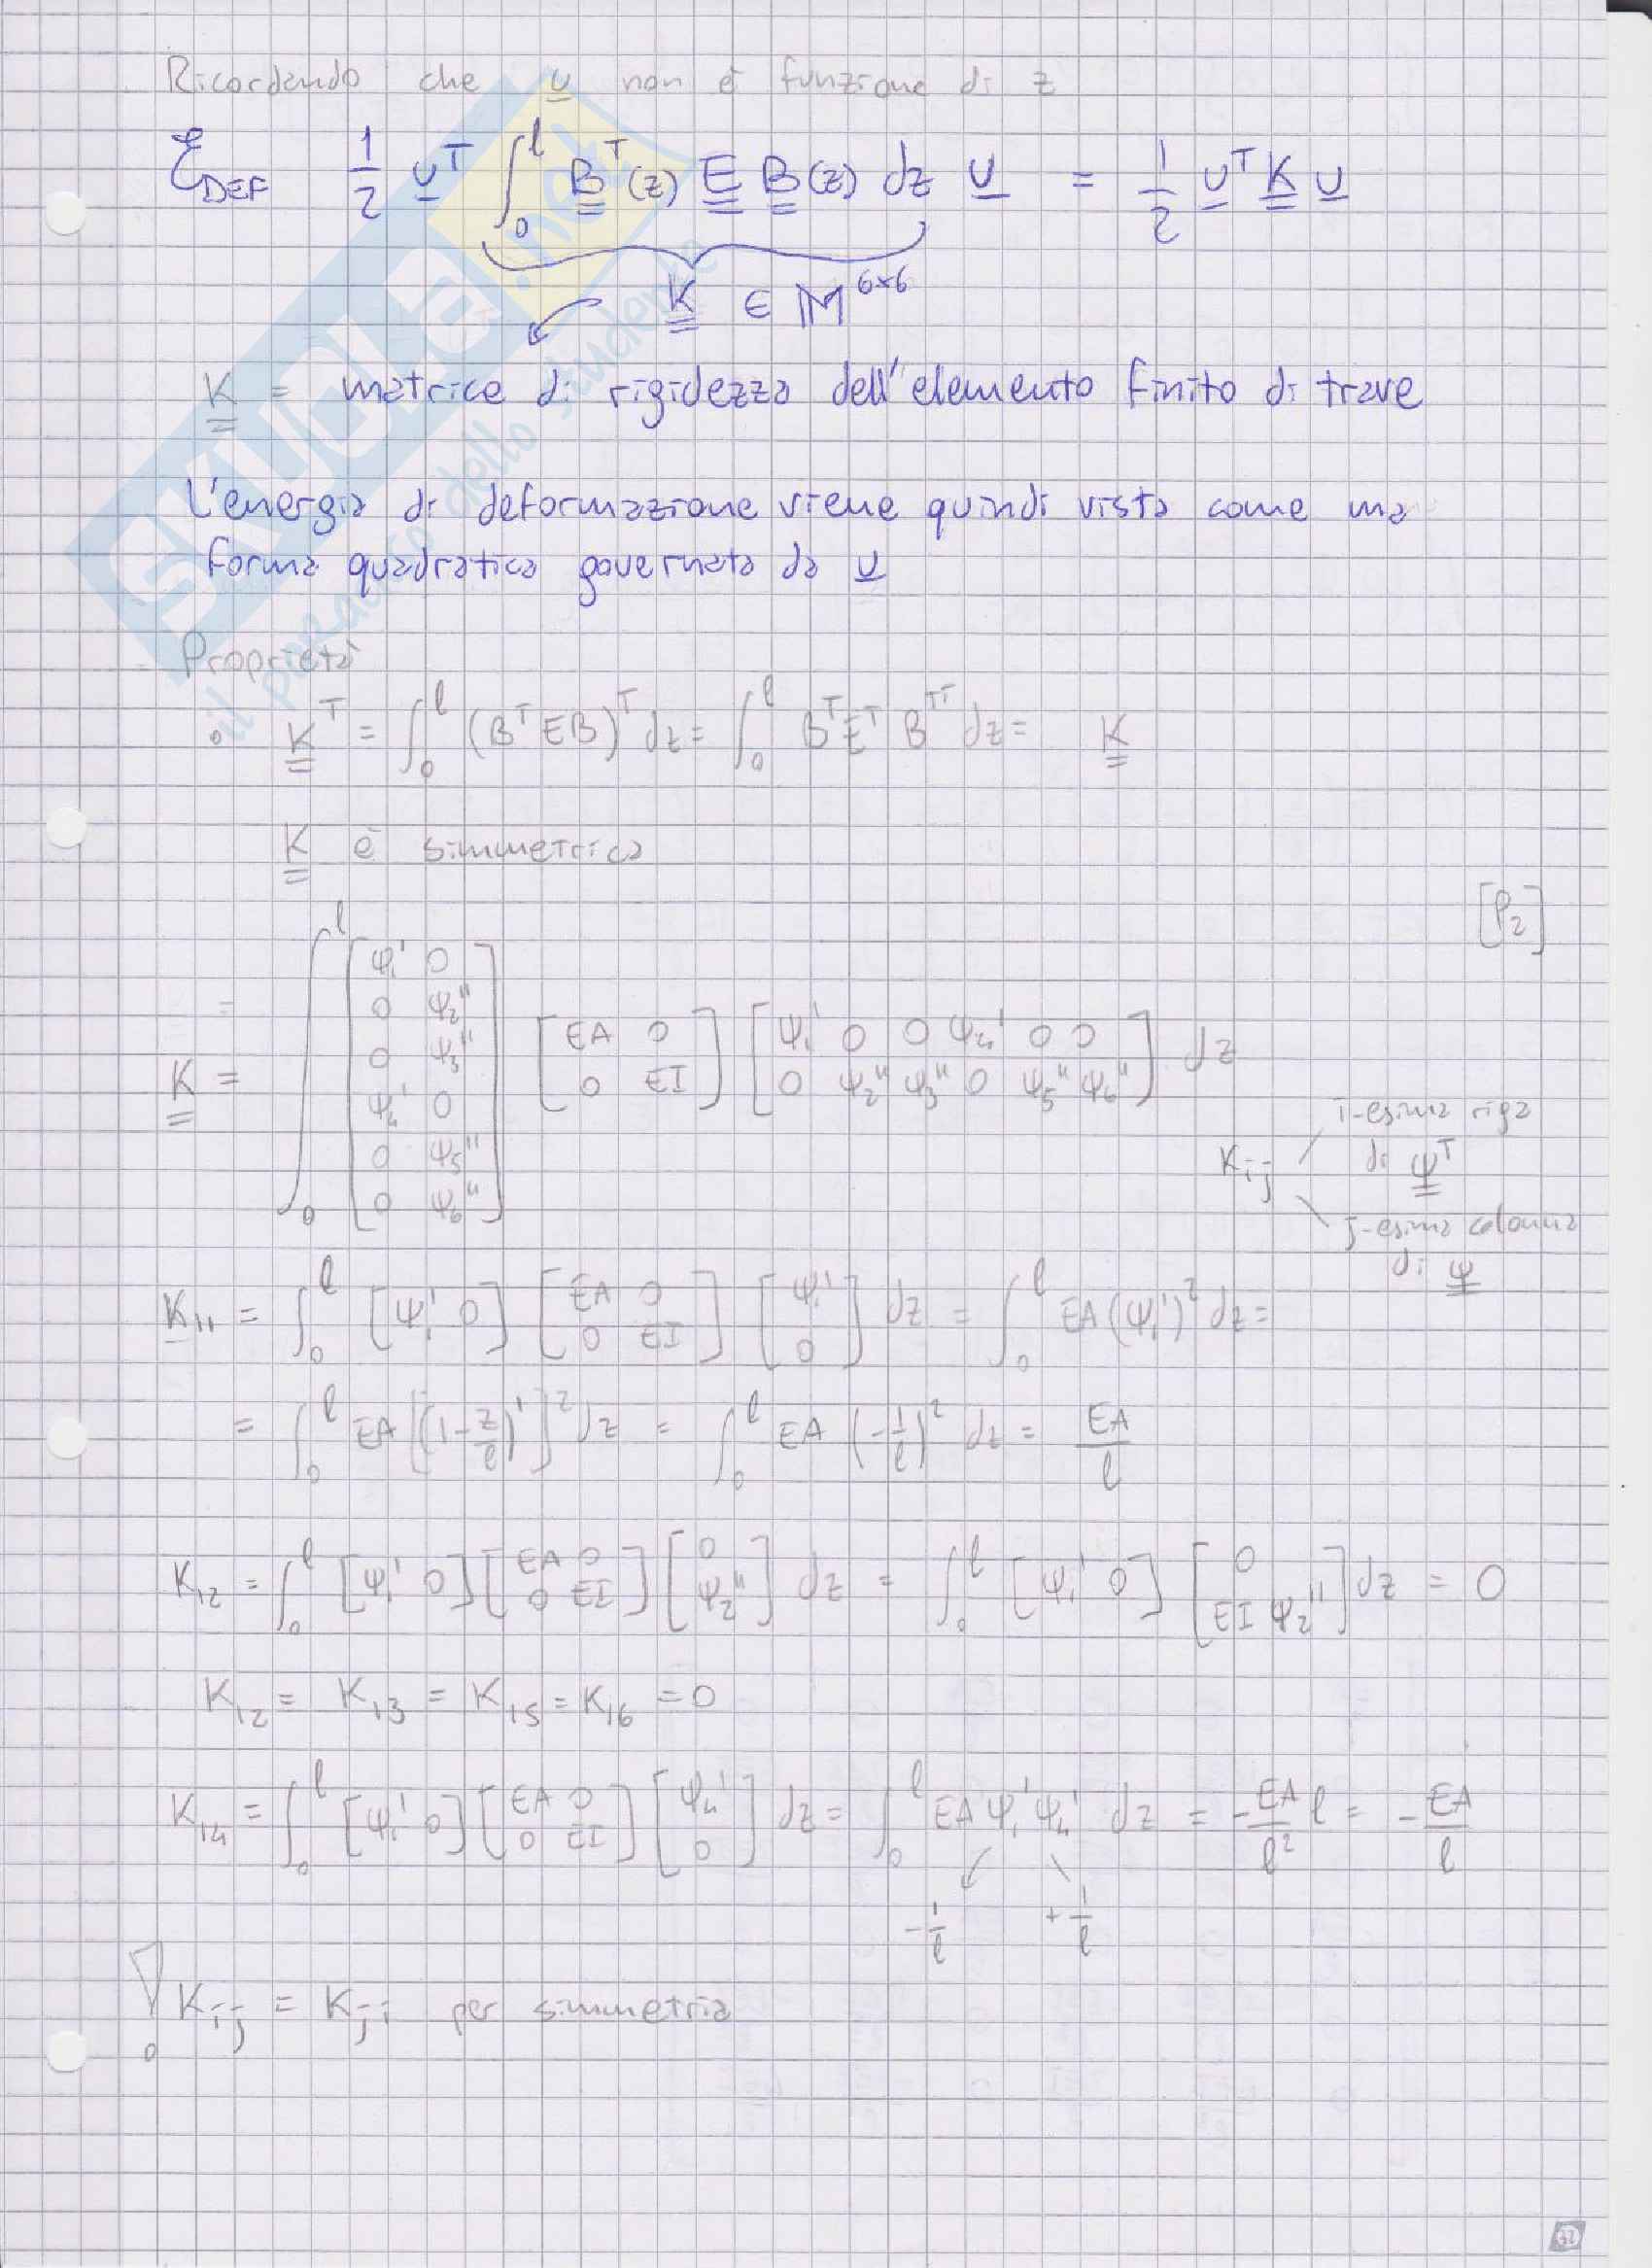 Ricordando che u non è funzione di z
ℰ_DEF 1/2 u^T ∫_0^l B^T(z) E B(z) dz u = 1/2 u^T K u
K ∈ M^{6×6}
K = matrice di rigidezza dell'elemento finito di trave
L'energia di deformazione viene quindi vista come una
forma quadratica governata da u
Proprietà
K^T = ∫_0^l (B^T E B)^T dz = ∫_0^l B^T E^T B^{TT} dz = K
K è simmetrica
[P_2]
=
K = ∫_0^l [ψ_1' 0; 0 ψ_2''; 0 ψ_3''; ψ_4' 0; 0 ψ_5''; 0 ψ_6''] [EA 0; 0 EI] [ψ_1' 0 0 ψ_4' 0 0; 0 ψ_2'' ψ_3'' 0 ψ_5'' ψ_6''] dz
K_ij
i-esima riga
di ψ^T
j-esima colonna
di ψ
K_11 = ∫_0^l [ψ_1' 0] [EA 0; 0 EI] [ψ_1'; 0] dz = ∫_0^l EA (ψ_1')^2 dz =
= ∫_0^l EA [(1 - z/l)']^2 dz = ∫_0^l EA (-1/l)^2 dz = EA/l
K_12 = ∫_0^l [ψ_1' 0] [EA 0; 0 EI] [0; ψ_2''] dz = ∫_0^l [ψ_1' 0] [0; EI ψ_2''] dz = 0
K_12 = K_13 = K_15 = K_16 = 0
K_14 = ∫_0^l [ψ_1' 0] [EA 0; 0 EI] [ψ_4'; 0] dz = ∫_0^l EA ψ_1' ψ_4' dz = -EA/l^2 l = -EA/l
-1/l +1/l
! K_ij = K_ji per simmetria
32
SKUOLA.net
il paradiso dello studente